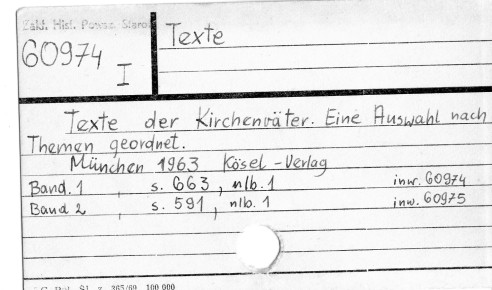 Zakł. Hist. Powsz. Staroż
60974
I
Texte
Texte der Kirchenväter. Eine Auswahl nach
Themen geordnet.
München 1963 Kösel-Verlag
Band. 1 , s. 663, nlb. 1 inw. 60974
Band 2 , s. 591, nlb. 1 inw. 60975
365/60 100 000